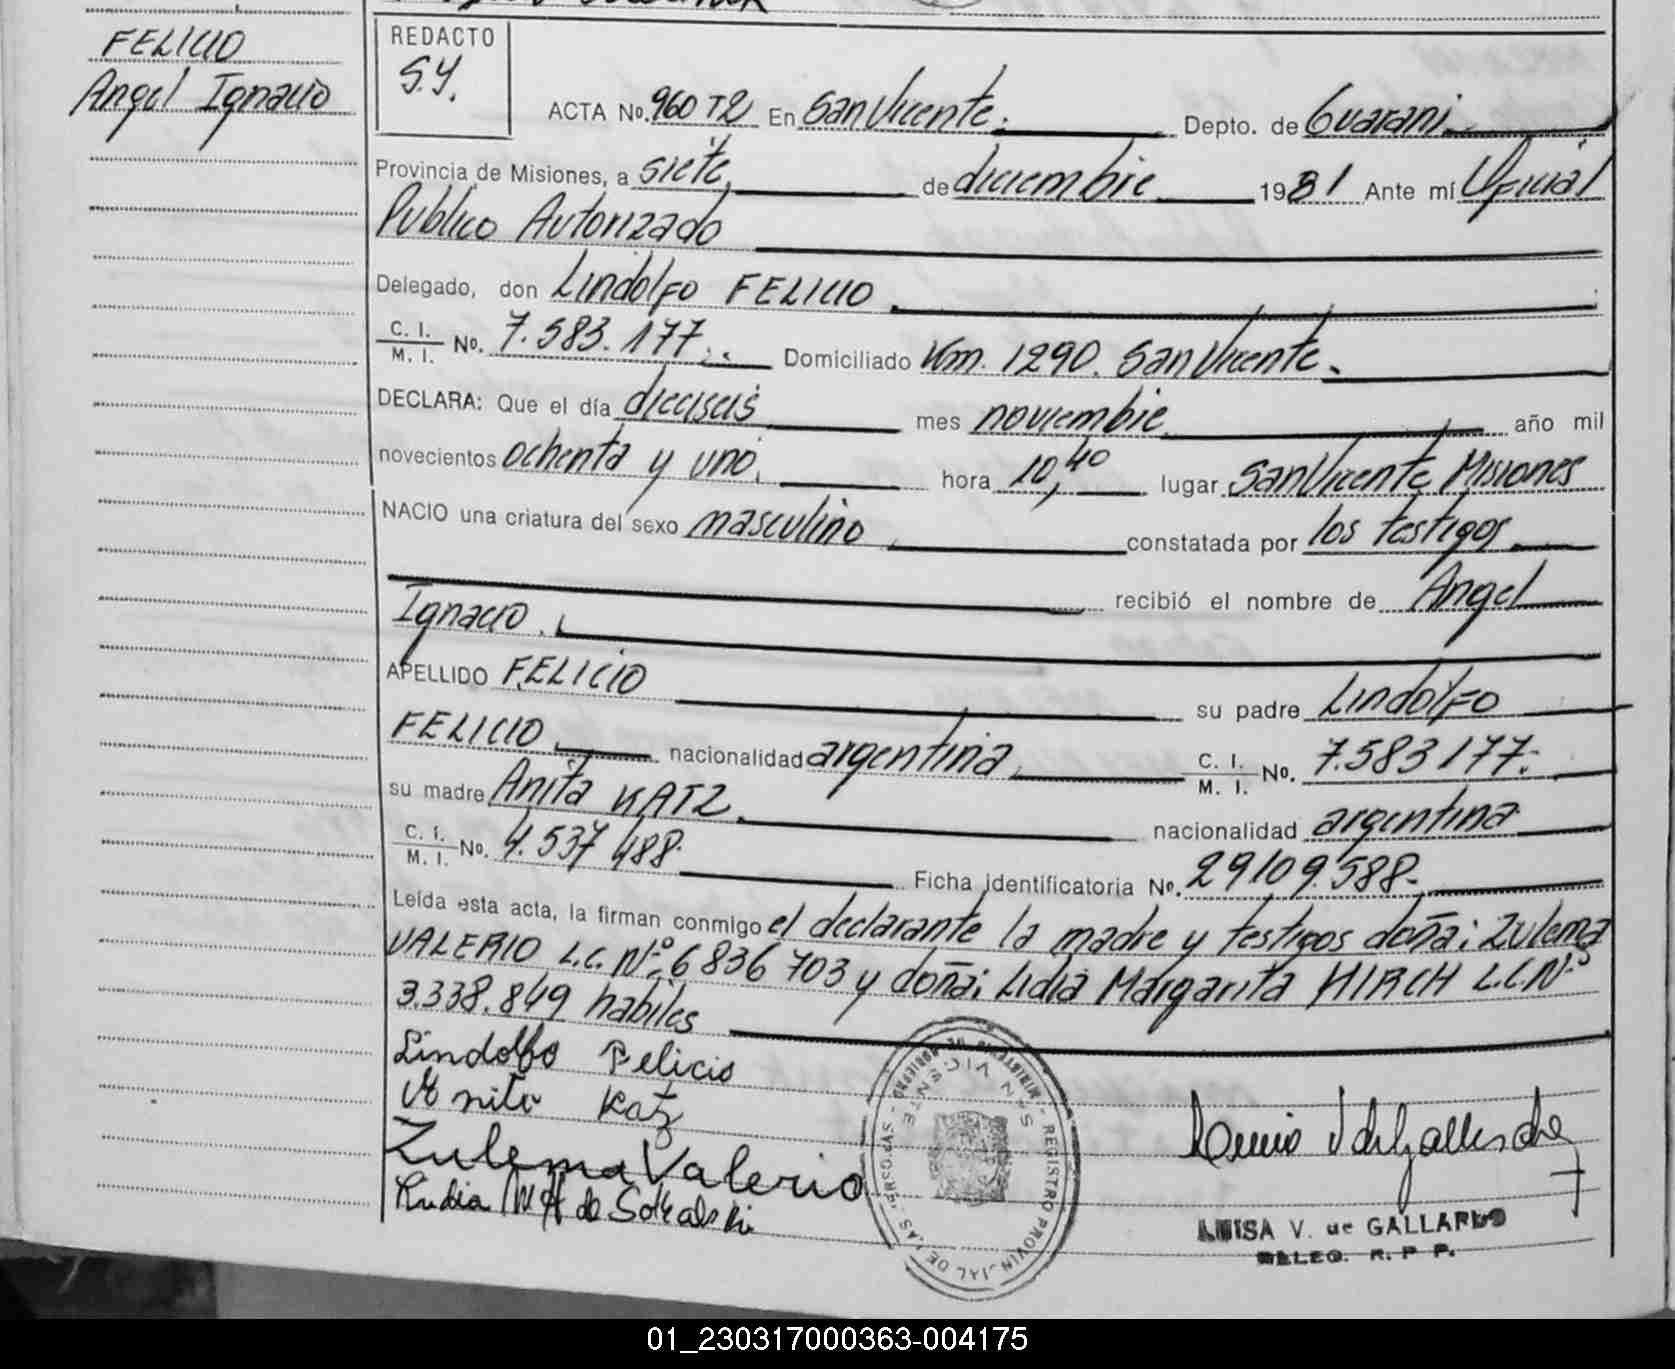 FELICIO
Angel Ignacio
REDACTO
S.Y.
ACTA No. 960 T2 En San Vicente. Depto. de Guarani
Provincia de Misiones, a siete de diciembre 1981 Ante mí Oficial
Publico Autorizado
Delegado, don Lindolfo FELICIO
C. I. / M. I. No. 7.583.177. Domiciliado Km. 1290. San Vicente.
DECLARA: Que el día dieciseis mes noviembre año mil
novecientos ochenta y uno. hora 10,40 lugar San Vicente Misiones
NACIO una criatura del sexo masculino constatada por los testigos
recibió el nombre de Angel
Ignacio.
APELLIDO FELICIO su padre Lindolfo
FELICIO nacionalidad argentina C. I. / M. I. No. 7.583177.
su madre Anita KATZ. nacionalidad argentina
C. I. / M. I. No. 4.537 488. Ficha identificatoria No. 29109.588.
Leída esta acta, la firman conmigo el declarante la madre y testigos doña: Zulema
VALERIO L.C. Nº 6836 703 y doña: Lidia Margarita HIRCH L.C.Nº
3.338.849 habiles
Lindolfo Felicio
Anita Katz
Zulema Valerio
MINISTERIO DE GOBIERNO - REGISTRO PROVINCIAL DE LAS PERSONAS -
SAN VICENTE
LUISA V. de GALLARDO
DELEG. R. P. P.
01_230317000363-004175